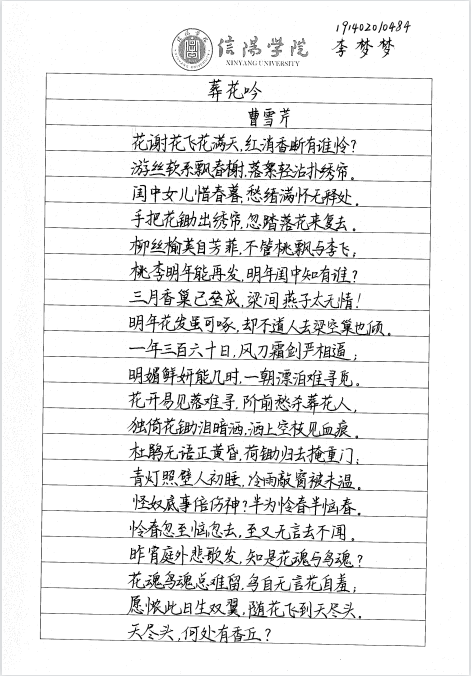 1914020/0484
信阳学院 李梦梦
XINYANG UNIVERSITY
葬花吟
曹雪芹
花谢花飞花满天,红消香断有谁怜?
游丝软系飘春榭,落絮轻沾扑绣帘。
闺中女儿惜春暮,愁绪满怀无释处。
手把花锄出绣帘,忽踏落花来复去。
柳丝榆荚自芳菲,不管桃飘与李飞;
桃李明年能再发,明年闺中知有谁?
三月香巢已垒成,梁间燕子太无情!
明年花发虽可啄,却不道人去梁空巢也倾。
一年三百六十日,风刀霜剑严相逼;
明媚鲜妍能几时,一朝漂泊难寻觅。
花开易见落难寻,阶前愁杀葬花人,
独倚花锄泪暗洒,洒上空枝见血痕。
杜鹃无语正黄昏,荷锄归去掩重门;
青灯照壁人初睡,冷雨敲窗被未温。
怪奴底事倍伤神?半为怜春半恼春。
怜春忽至恼忽去,至又无言去不闻。
昨宵庭外悲歌发,知是花魂与鸟魂?
花魂鸟魂总难留,鸟自无言花自羞;
愿侬此日生双翼,随花飞到天尽头。
天尽头,何处有香丘?